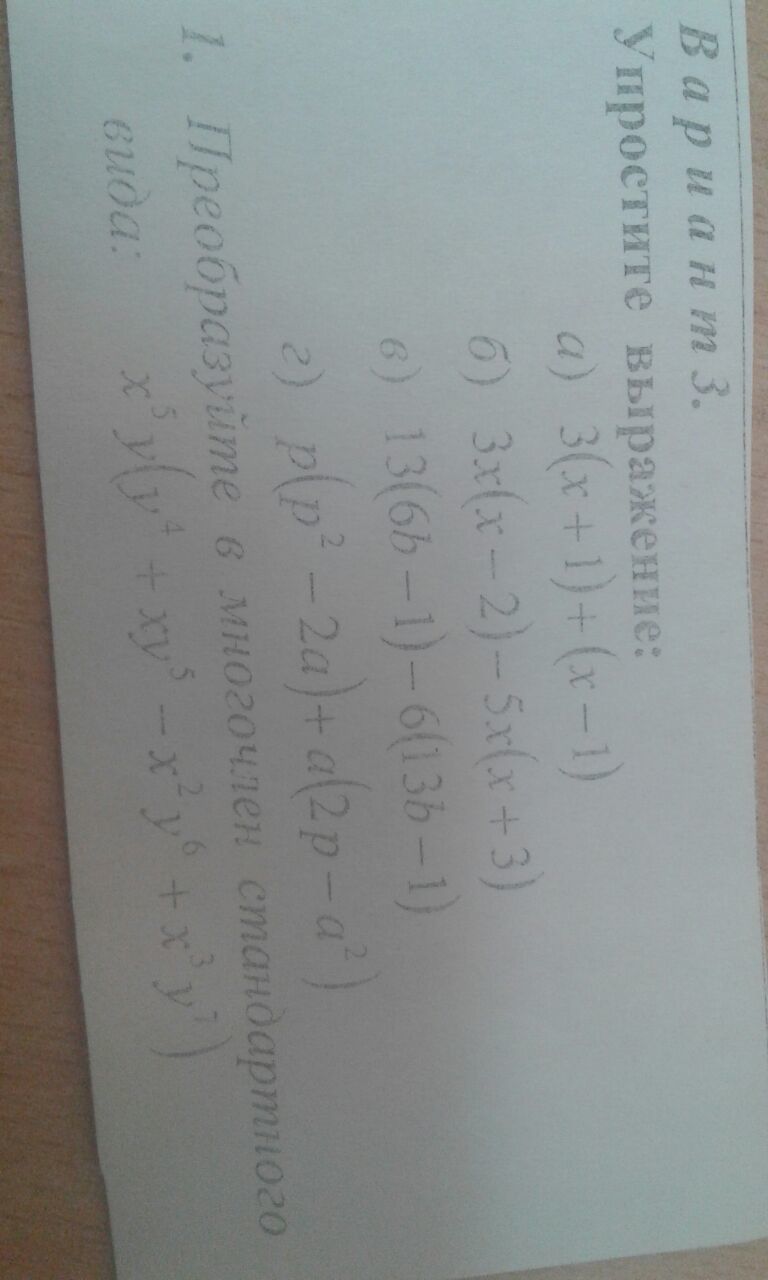 Вариант 3.
Упростите выражение:
а) 3(x + 1) + (x − 1)
б) 3x(x − 2) − 5x(x + 3)
в) 13(6b − 1) − 6(13b − 1)
г) p(p² − 2a) + a(2p − a²)
1. Преобразуйте в многочлен стандартного
вида: x⁵y(y⁴ + xy⁵ − x²y⁶ + x³y⁷)